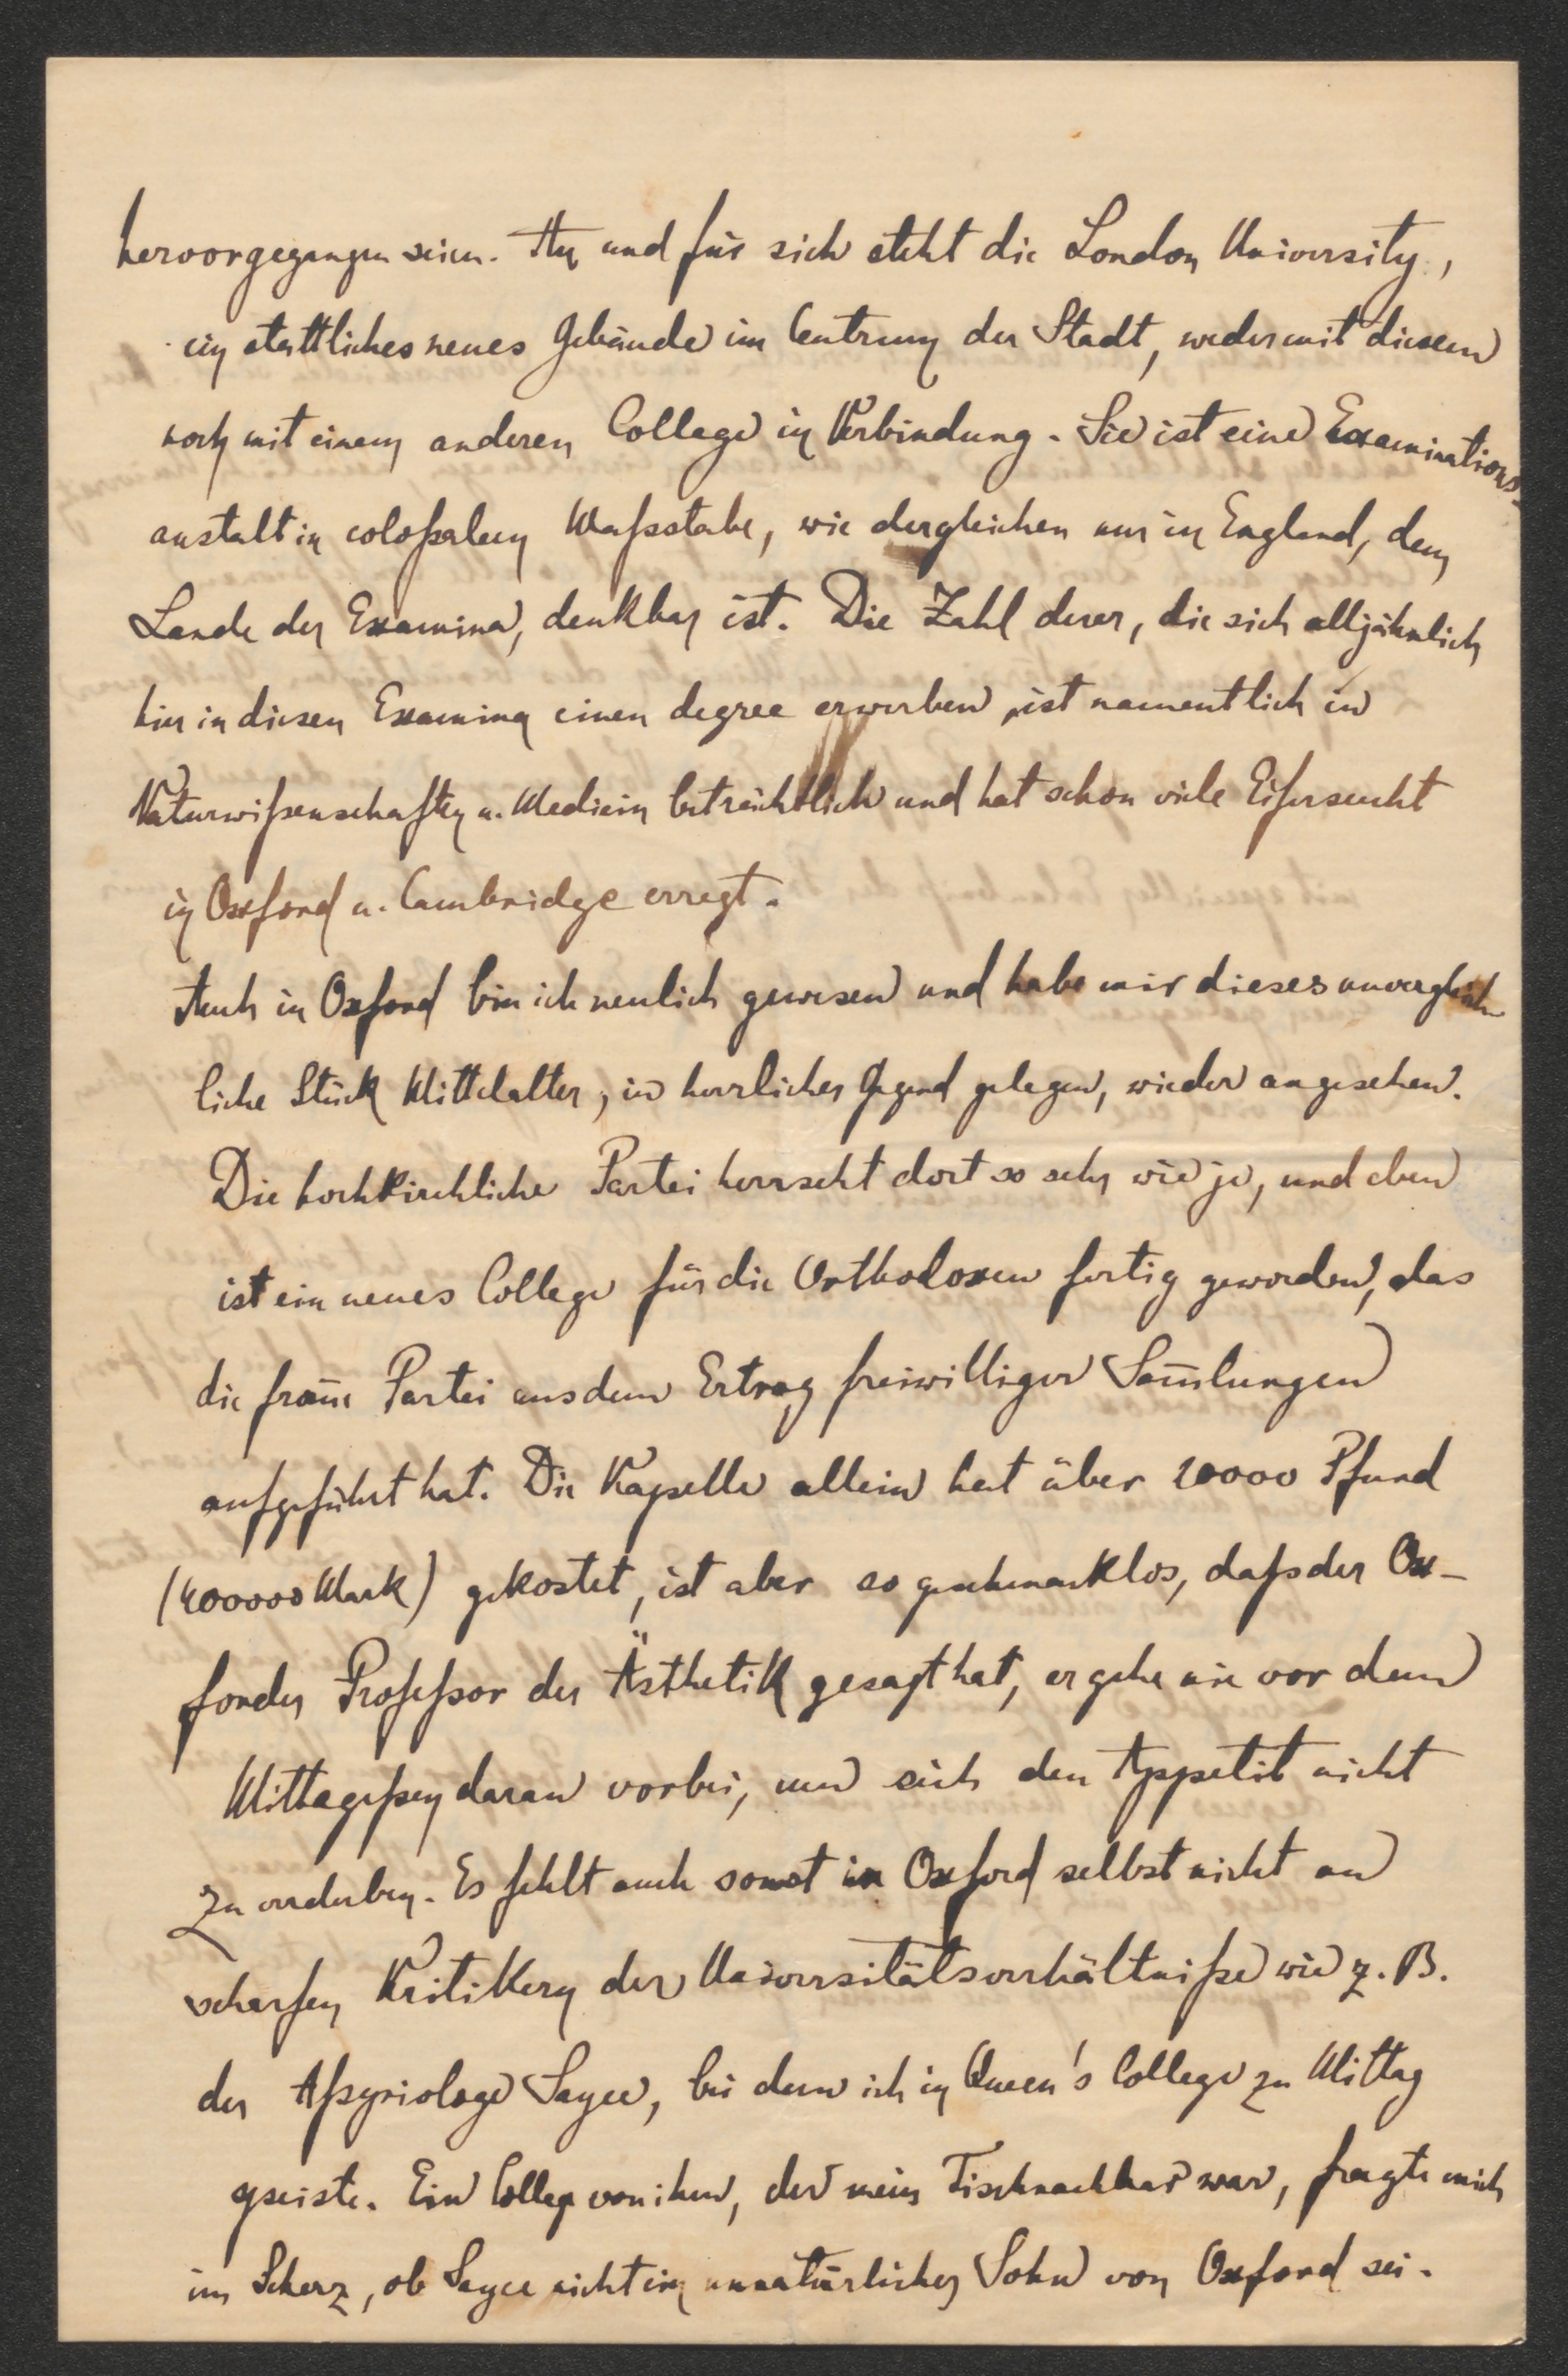 hervorgegangen seien. An und für sich steht die London University,
ein stattliches neues Gebäude im Centrum der Stadt, weder mit diesem
noch mit einem anderen College in Verbindung. Sie ist eine Examinations-
anstalt in coloßalem Maßstabe, wie dergleichen nur in England, dem
Lande der Examina, denkbar ist. Die Zahl derer, die sich alljährlich
hier in diesen Examina einen degree erwerben, ist namentlich in
Naturwißenschaften u. Medicin beträchtlich und hat schon viele Eifersucht
in Oxford u. Cambridge erregt.
Auch in Oxford bin ich neulich gewesen und habe mir dieses unvergleich-
liche Stück Mittelalter, in herrlicher Gegend gelegen, wieder angesehen.
Die hochkirchliche Partei herrscht dort so sehr wie je, und eben
ist ein neues College für die Orthodoxen fertig geworden, das
die from̄e Partei aus dem Ertrag freiwilliger Sam̄lungen
aufgeführt hat. Die Kapelle allein hat über 20000 Pfund
(400000 Mark) gekostet, ist aber so geschmacklos, daß der Ox-
forder Profeßor der Ästhetik gesagt hat, er gehe nie vor dem
Mittageßen daran vorbei, um sich den Appetit nicht
zu verderben. Es fehlt auch sonst in Oxford selbst nicht an
scharfen Kritikern der Universitätsverhältniße wie z. B.
der Aßyriologe Sayce, bei dem ich in Queen's College zu Mittag
speiste. Ein Colleg von ihm, der mein Tischnachbar war, fragte mich
im Scherz, ob Sayce nicht ein unnatürlicher Sohn von Oxford sei.